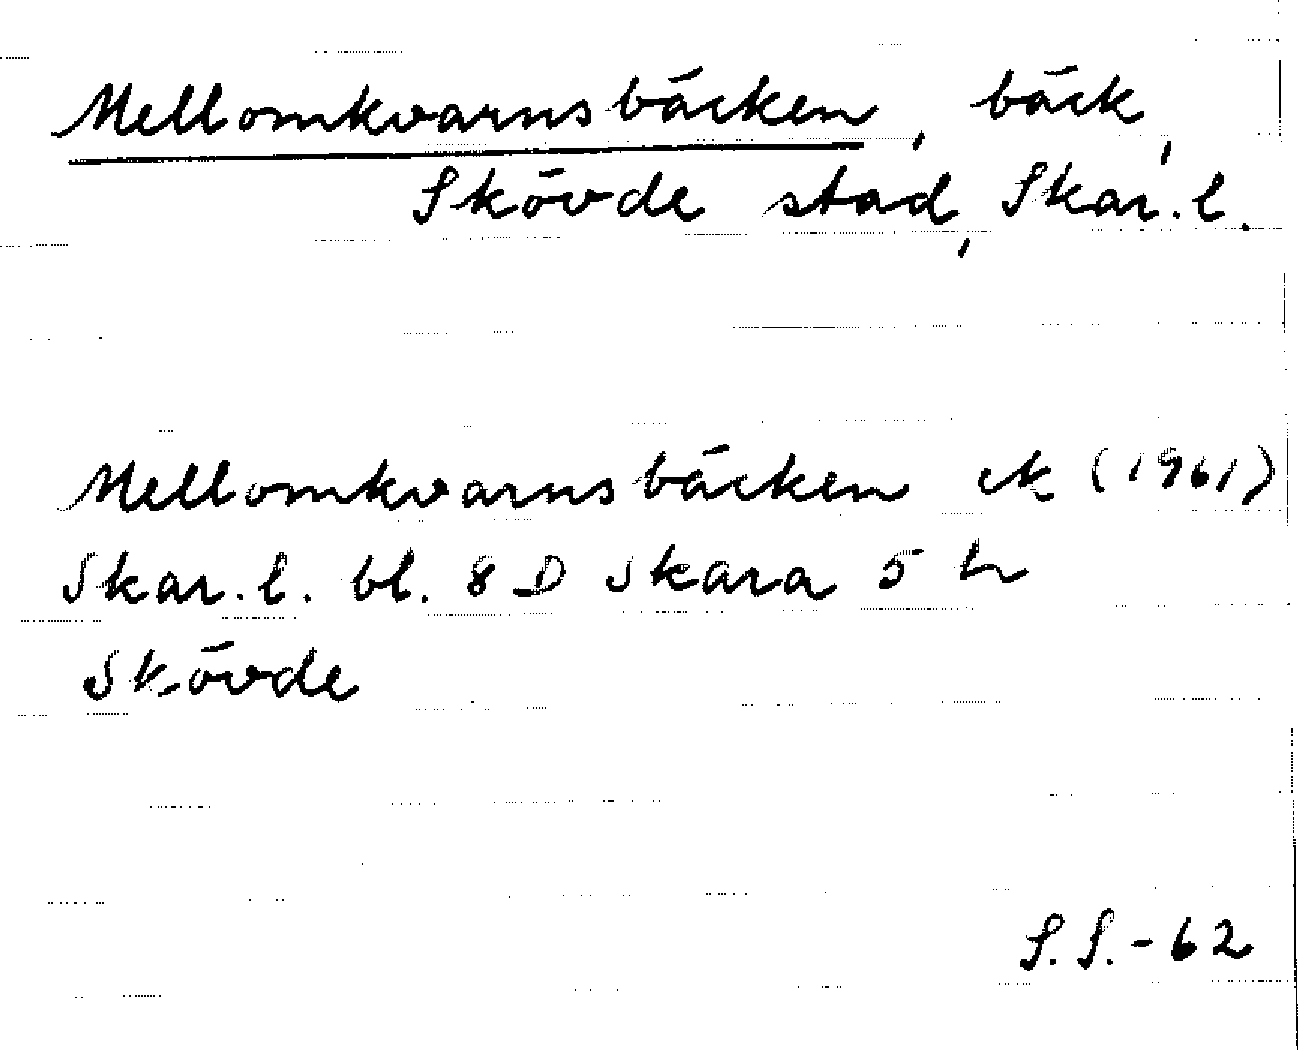 Mellomkvarnsbäcken, bäck,
Skövde stad, Skar. l.
Mellomkvarnsbäcken ek (1961)
Skar. l. bl. 8 D Skara 5 h
Skövde
S.S.-62